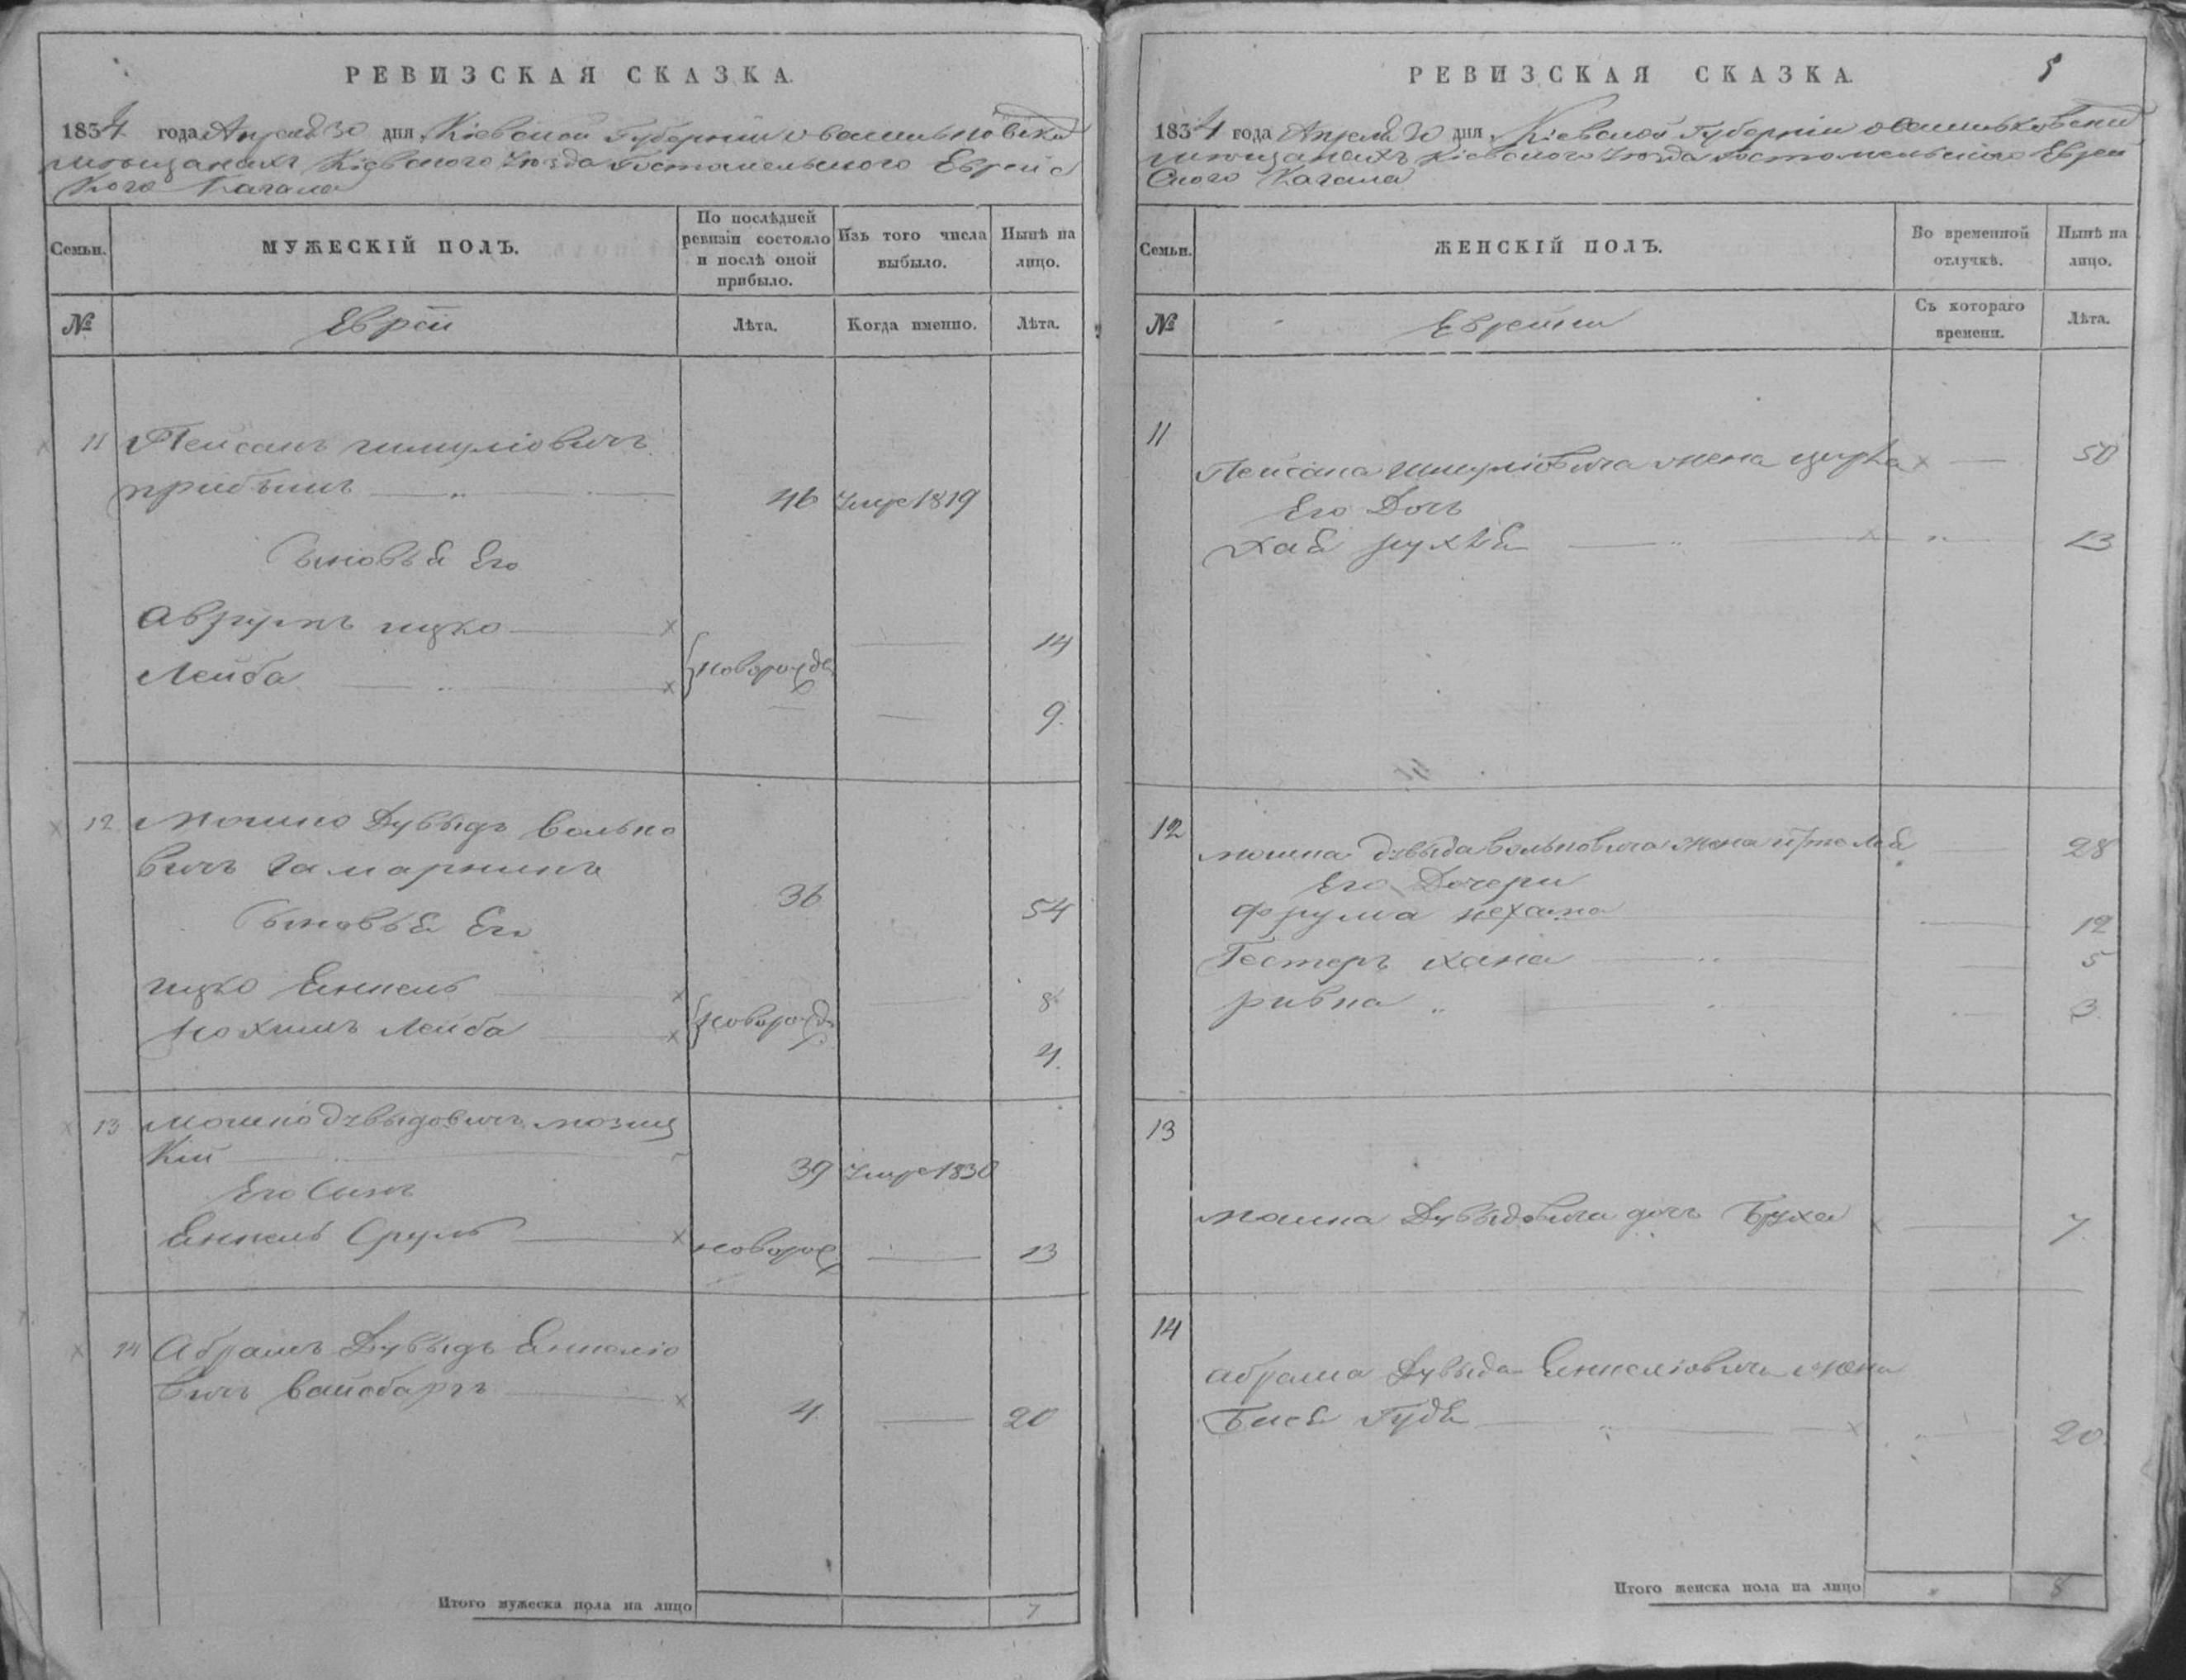 РЕВИЗСКАЯ СКАЗКА.
1834 года Апреля 30 дня Кіевской Губерніи о васильковски
мещанахъ Кіевского Уезда Гостомельского Еврейс
кого Кагала
Семьи.
МУЖЕСКІЙ ПОЛЪ.
По послѣдней ревизіи состояло и послѣ оной прибыло.
Изъ того числа выбыло.
Нынѣ на лицо.
№
Евреи
Лѣта.
Когда именно.
Лѣта.
11 Пейсахъ шмуліовичъ
46 Умре 1819
Сыновья Его
Аврумъ ицко 14
Лейба новорожде 9.
12 Мошко Дувыдъ Волько
вичъ Гамарникъ
36 54
Сыновья Его
ицко Янкель 8
Нохимъ Лейба новорожд 4.
13 Мошко дувыдовичъ мозиц
кій 39 Умре 1830
Его Сынъ
Янкель Сруль новорож 13
14 Абрамъ Дувыдъ Янкеліо
вичъ Вайсбаргъ 4 20
Итого мужеска пола на лицо 7
РЕВИЗСКАЯ СКАЗКА. 5
1834 года Апреля 30 дня Кіевской Губерніи о Васильковски
мещанахъ Кіевского Уезда Гостомельского Еврей
Ского Кагала
Семьи.
ЖЕНСКІЙ ПОЛЪ.
Во временной отлучкѣ.
Нынѣ на лицо.
№
Еврейки
Съ котораго времени.
Лѣта.
11
Пейсаха Шмуліовича жена цирка 50
Его Дочь
хая рухля 13
12
мошка дувыда вольковича жена 28
Его Дочери
Фрума нехама 12
Гестеръ хана 5
ривка 3
13
мошка Дувыдовича дочь Бруха 7
14
абрама Дувыда Янкеліовича жена
Бися Гудя 20
Итого женска пола на лицо 8